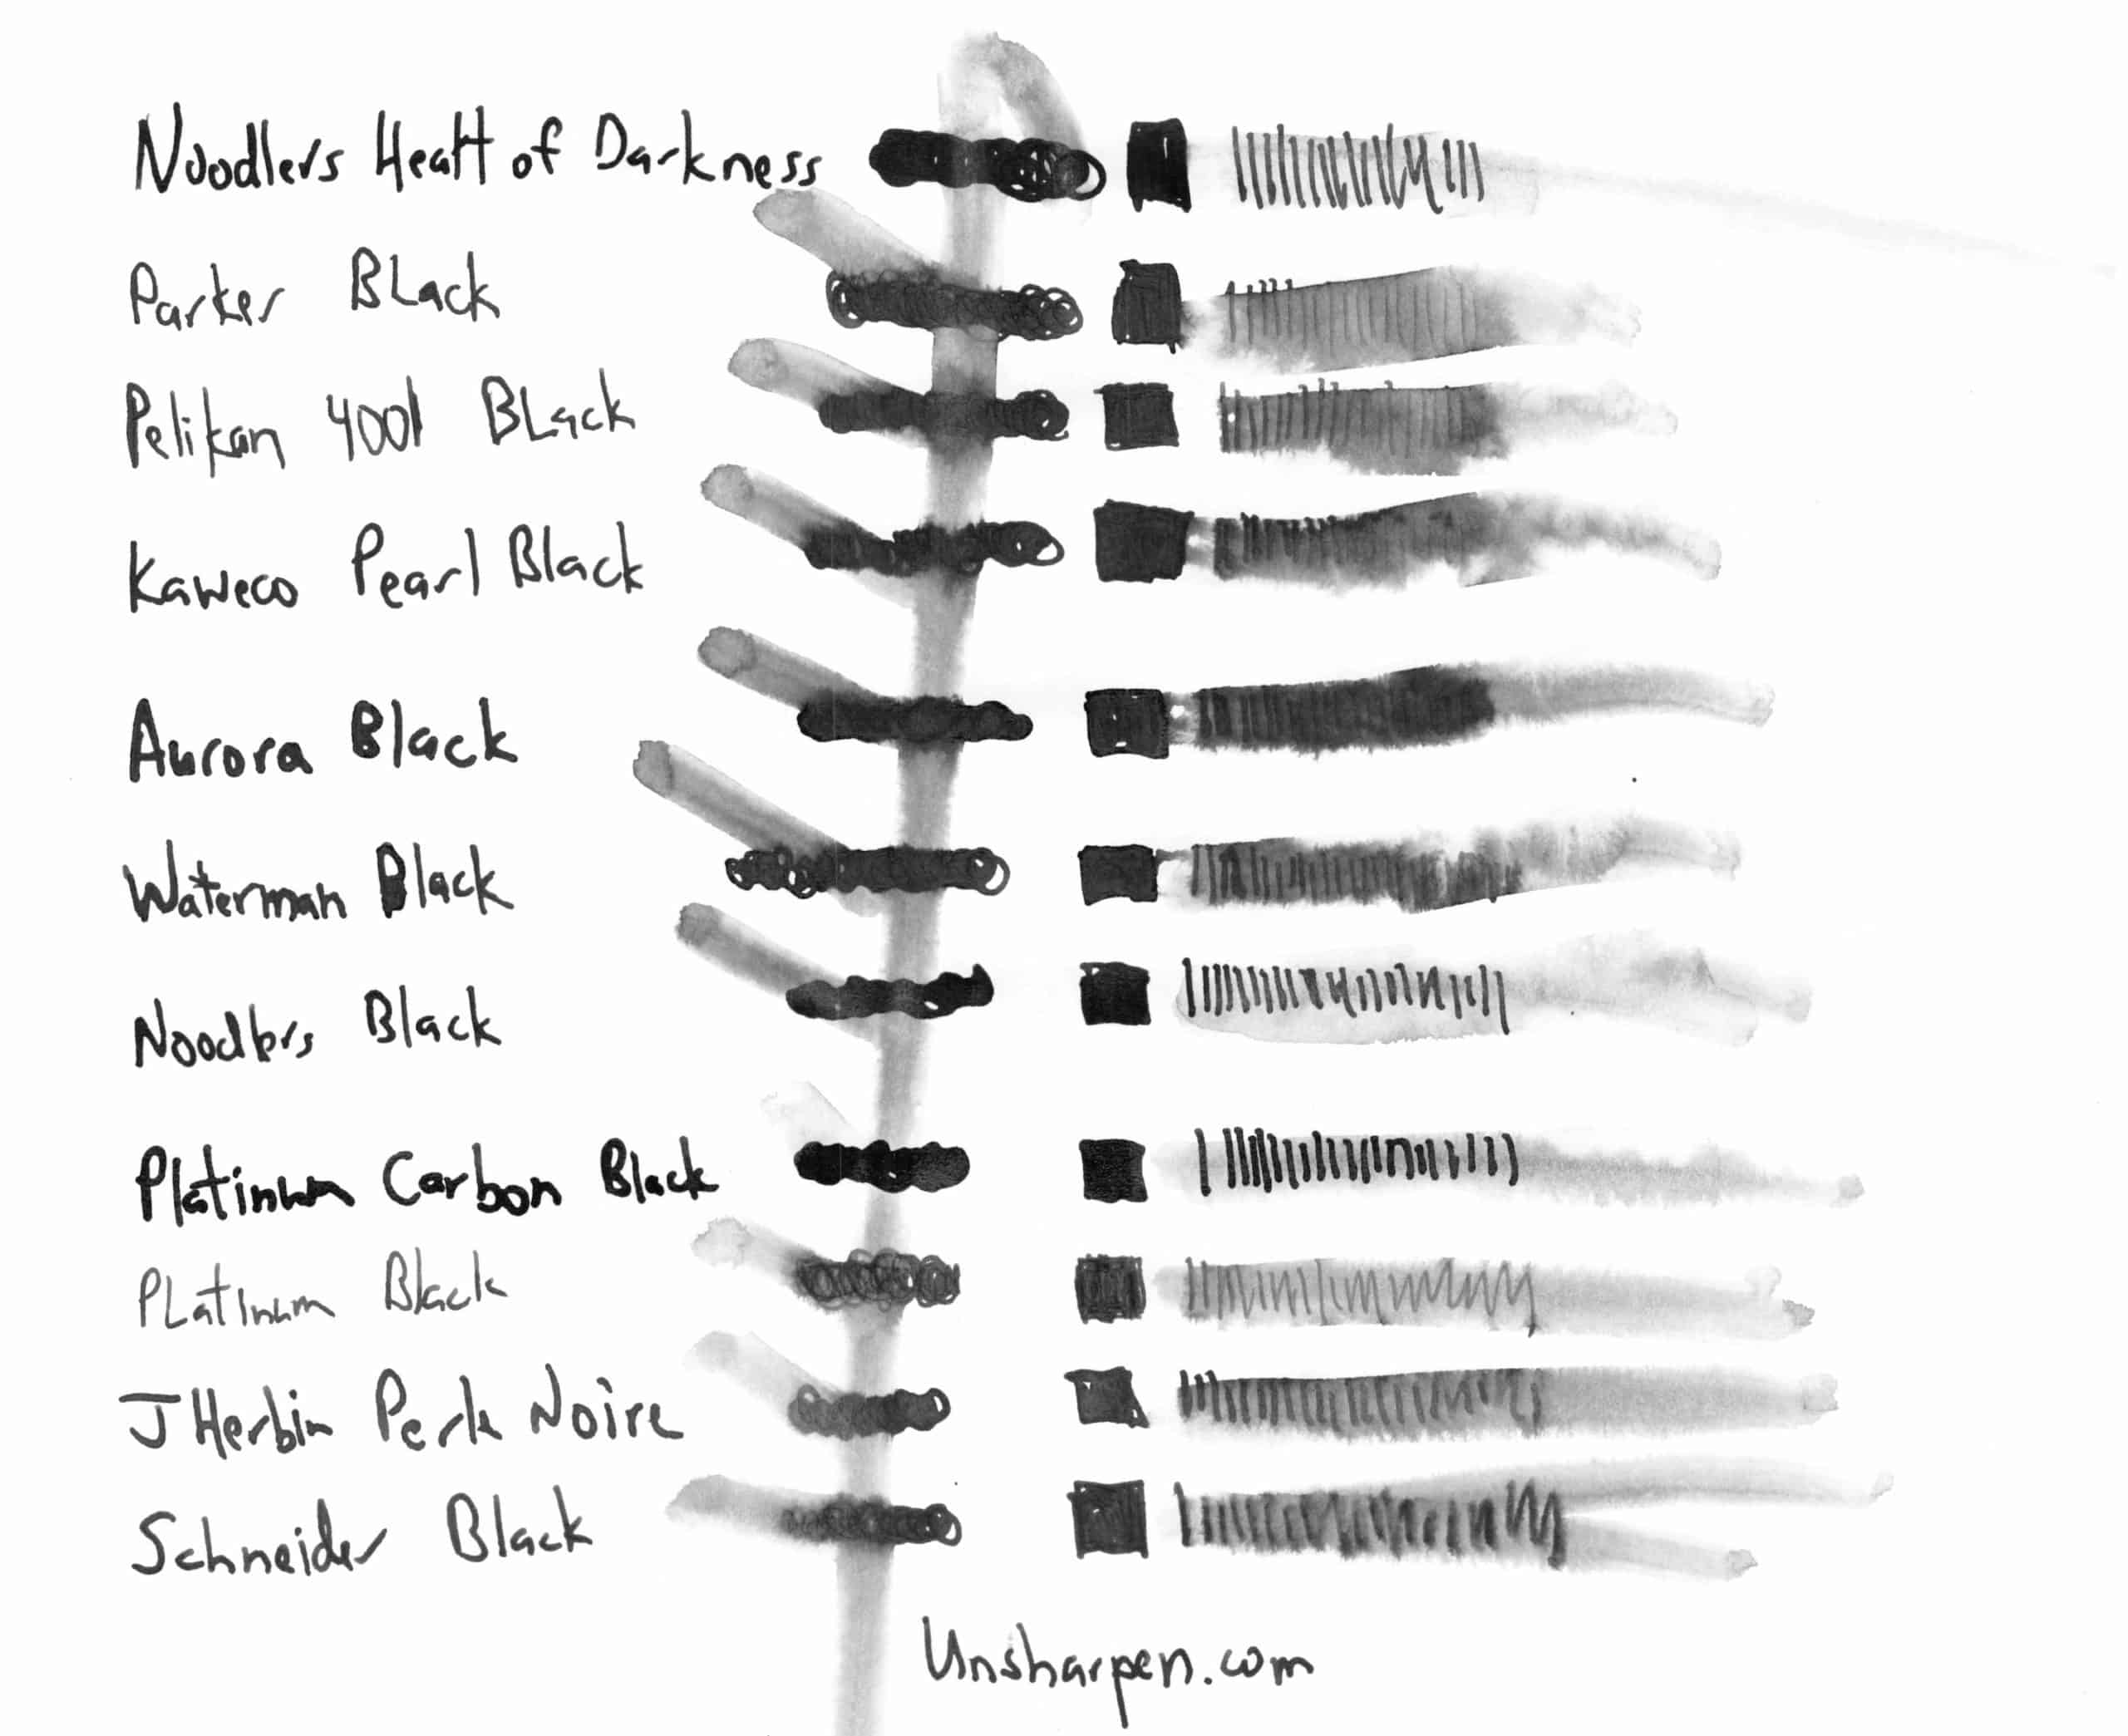 Noodlers Heart of Darkness
Parker Black
Pelikan 4001 Black
Kaweco Pearl Black
Aurora Black
Waterman Black
Noodlers Black
Platinum Carbon Black
Platinum Black
J Herbin Perle Noire
Schneider Black
Unsharpen.com